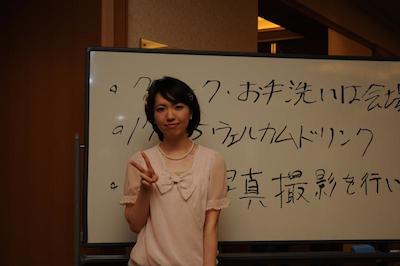 ・ク ク・お手洗いは会場
ウェルカムドリンク
写真撮影を行い